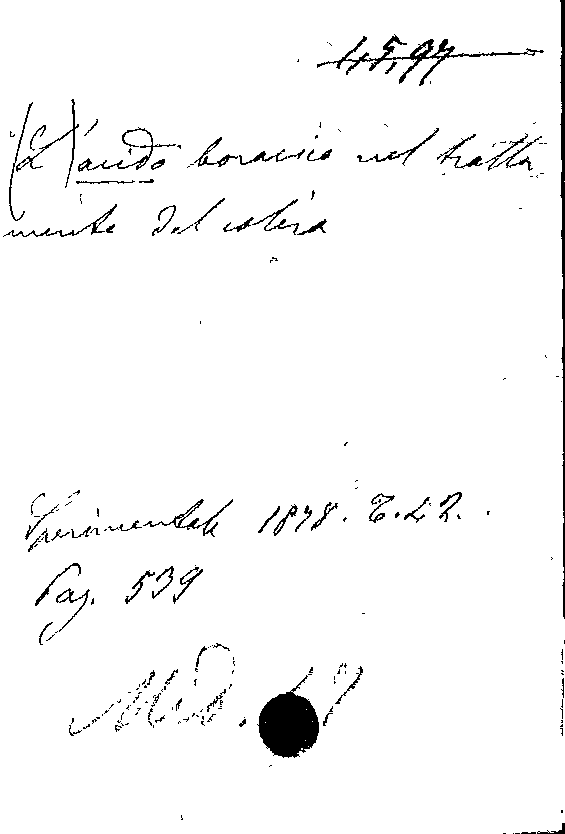 45,97
(L')acido boracico nel tratta
mento del colèra
Sperimentale 1878. T. 42.
Pag. 539
Med.